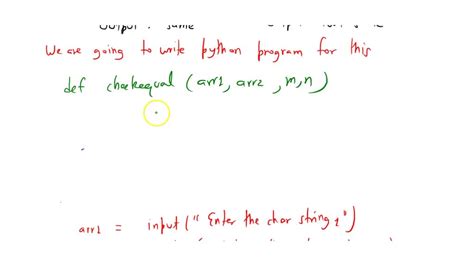 same
We are going to write python program for this
def checkequal (arr1, arr2, m,n)
arr1 = input("Enter the char string 1")